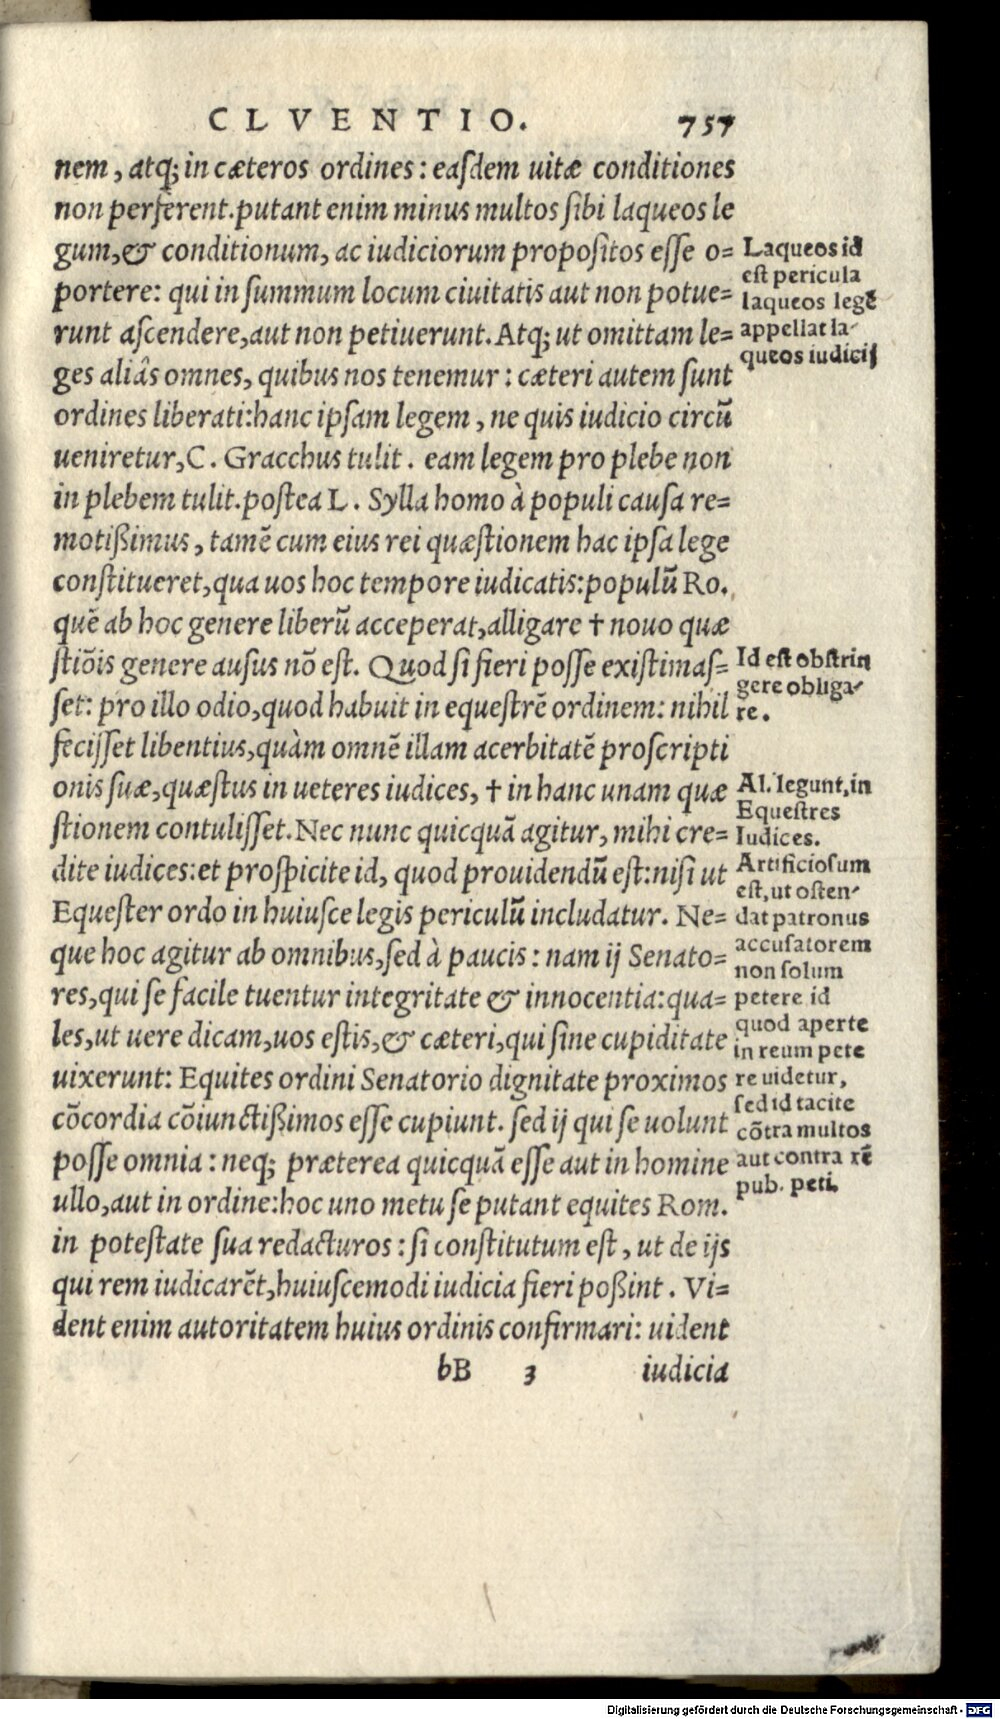 CLVENTIO. 757
nem, atq; in cæteros ordines: eaſdem uitæ conditiones
non perferent. putant enim minus multos ſibi laqueos le
gum, & conditionum, ac iudiciorum propoſitos eſſe o=
portere: qui in ſummum locum ciuitatis aut non potue=
runt aſcendere, aut non petiuerunt. Atq; ut omittam le=
ges aliâs omnes, quibus nos tenemur: cæteri autem ſunt
ordines liberati: hanc ipſam legem, ne quis iudicio circū
ueniretur, C. Gracchus tulit. eam legem pro plebe non
in plebem tulit. poſtea L. Sylla homo à populi cauſa re=
motißimus, tamē cum eius rei quæſtionem hac ipſa lege
conſtitueret, qua uos hoc tempore iudicatis: populū Ro.
quē ab hoc genere liberū acceperat, alligare † nouo quæ
ſtiōis genere auſus nō eſt. Quod ſi fieri poſſe exiſtimaſ=
ſet: pro illo odio, quod habuit in equeſtrē ordinem: nihil
feciſſet libentius, quàm omnē illam acerbitatē proſcripti
onis ſuæ, quæſtus in ueteres iudices, † in hanc unam quæ
ſtionem contuliſſet. Nec nunc quicquā agitur, mihi cre=
dite iudices: et proſpicite id, quod prouidendū eſt: niſi ut
Equeſter ordo in huiuſce legis periculū includatur. Ne=
que hoc agitur ab omnibus, ſed à paucis: nam ij Senato=
res, qui ſe facile tuentur integritate & innocentia: qua=
les, ut uere dicam, uos eſtis, & cæteri, qui ſine cupiditate
uixerunt: Equites ordini Senatorio dignitate proximos
cōcordia cōiunctißimos eſſe cupiunt. ſed ij qui ſe uolunt
poſſe omnia: neq; præterea quicquā eſſe aut in homine
ullo, aut in ordine: hoc uno metu ſe putant equites Rom.
in poteſtate ſua redacturos: ſi conſtitutum eſt, ut de ijs
qui rem iudicarēt, huiuſcemodi iudicia fieri poßint. Vi=
dent enim autoritatem huius ordinis confirmari: uident
bB 3 iudicia
Laqueos id
eſt pericula
laqueos legē
appellat la-
queos iudicij
Id eſt obſtrin
gere obliga-
re.
Al. legunt, in
Equeſtres
Iudices.
Artificioſum
eſt, ut oſten-
dat patronus
accuſatorem
non ſolum
petere id
quod aperte
in reum pete
re uidetur,
ſed id tacite
cōtra multos
aut contra rē
pub. peti.
Digitalisierung gefördert durch die Deutsche Forschungsgemeinschaft - DFG